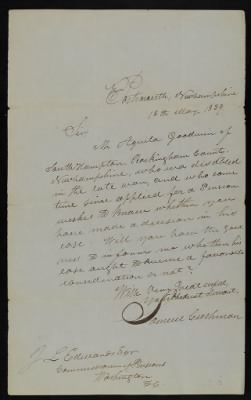 Portsmouth, Newhampshire
18th May 1837
Sir
Mr Aquila Goodwin of
South Hampton, Rockingham County
Newhampshire, who was disabled
in the late war, and who some
time since applied for a Pension
wishes to know whether you
have made a decision in his
case Will you have the good
ness to inform me whether his
case is to receive a favorable
consideration or not?
With very great respect,
your obedient Servant.
Samuel Cushman
J L Edwards Esqr
Commissioner of Pensions
Washington